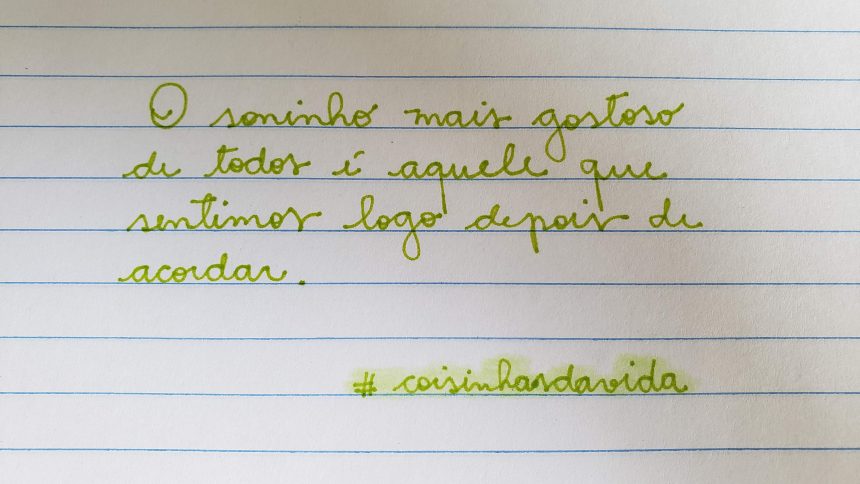 O soninho mais gostoso
de todos é aquele que
sentimos logo depois de
acordar.
# coisinhasdavida